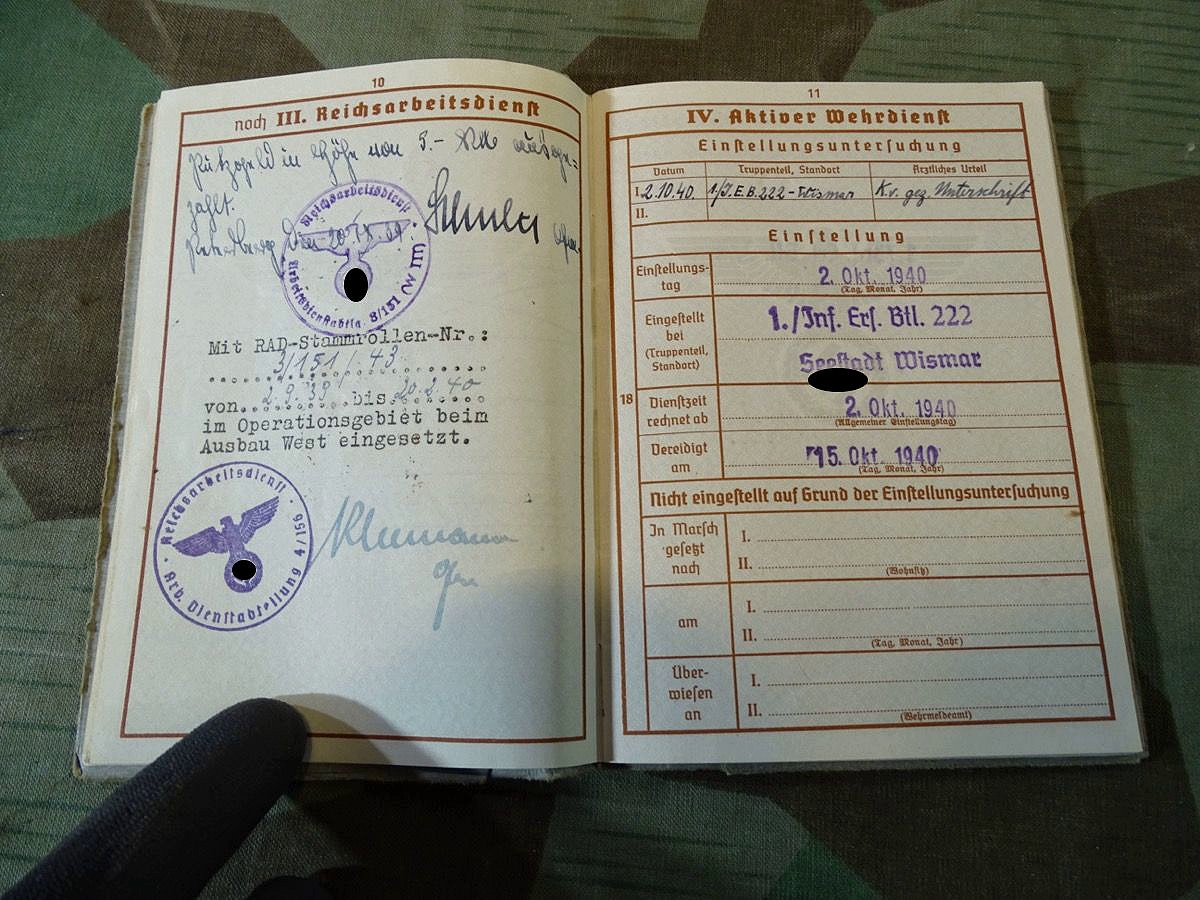 10
noch III. Reichsarbeitsdienst
Putzgeld in Höhe von 5.- RM ausge=
zahlt.
Petersberg, den
Reichsarbeitsdienst
Arbeitsdienstabtlg. 8/151 (W III)
Mit RAD-Stammrollen-Nr.:
3/151/43
von 2.9.39 bis 20.2.40
im Operationsgebiet beim
Ausbau West eingesetzt.
Reichsarbeitsdienst
Arb. Dienstabteilung 4/156
11
IV. Aktiver Wehrdienst
Einstellungsuntersuchung
Datum Truppenteil, Standort Ärztliches Urteil
I. 2.10.40. 1/J.E.B. 222 - Wismar K.v. gez. Unterschrift
II.
Einstellung
Einstellungs-
tag
2. Okt. 1940
(Tag, Monat, Jahr)
Eingestellt
bei
(Truppenteil,
Standort)
1./Inf. Ers. Btl. 222
Seestadt Wismar
18
Dienstzeit
rechnet ab
2. Okt. 1940
(Allgemeiner Einstellungstag)
Vereidigt
am
15. Okt. 1940
(Tag, Monat, Jahr)
Nicht eingestellt auf Grund der Einstellungsuntersuchung
In Marsch
gesetzt
nach
I.
II.
(Wohnsitz)
am
I.
II.
(Tag, Monat, Jahr)
Über-
wiesen
an
I.
II.
(Wehrmeldeamt)